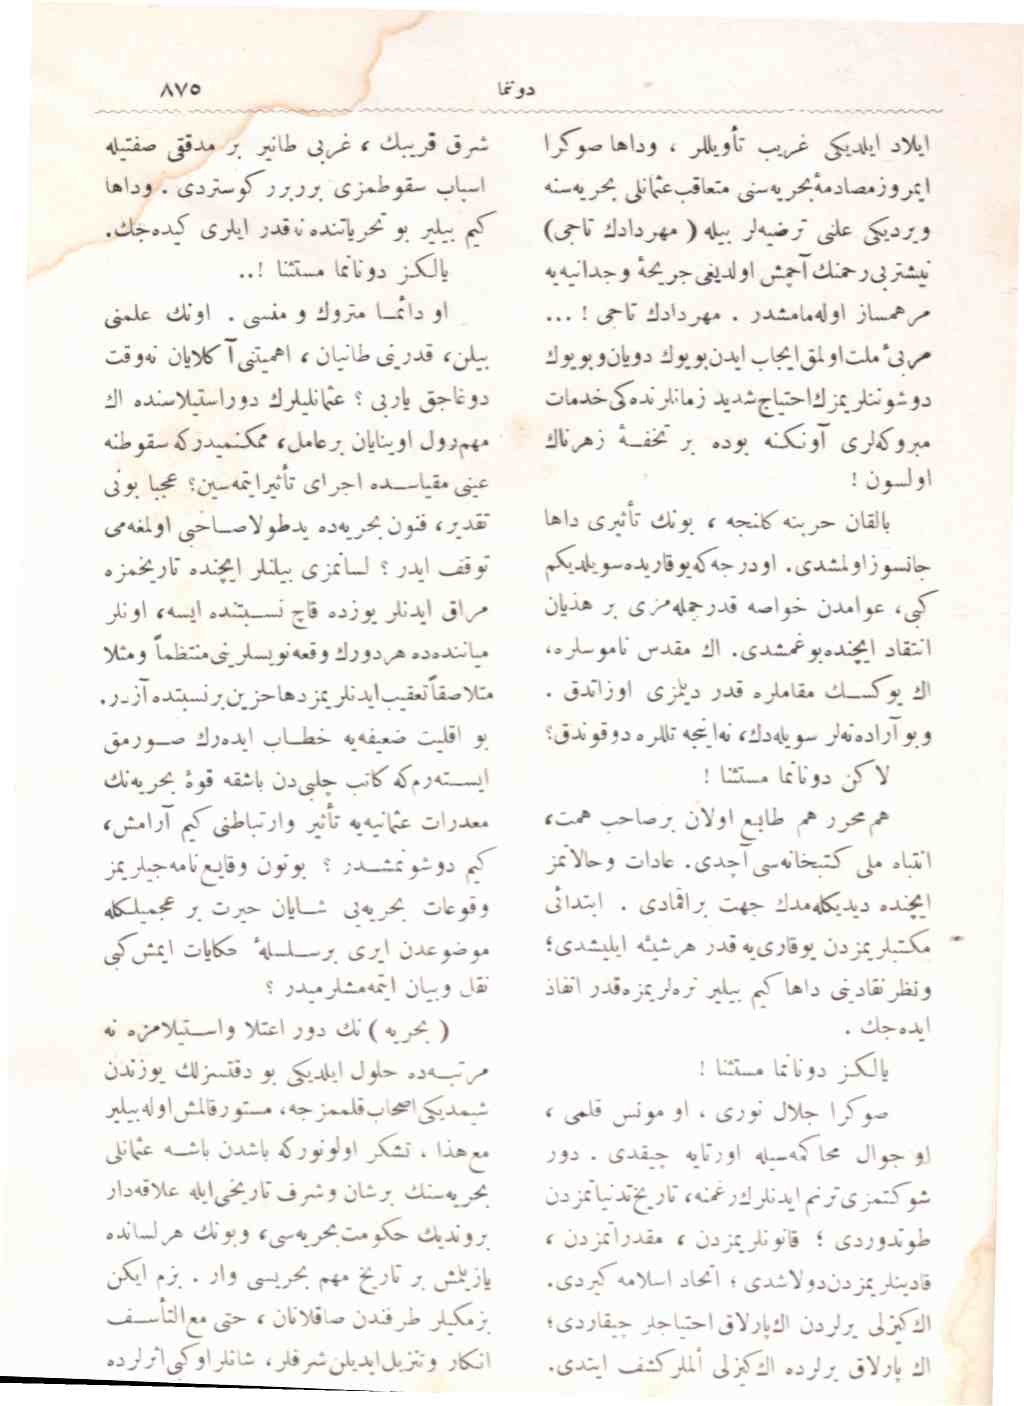 دوننما
٨٧٥
ايلاد ايلديكى غريب تأويللر ، وداها صوكرا
ايمروز مصادمهٔ بحريه‌سنى متعاقب عثمانلى بحريه‌سنه
ويرديكى علنى ترضيه‌لر بيله ( مهردادك تاجى )
نيشتر بى‌رحمنك آچمش اولديغى جريحهٔ وجدانيه‌يه
مرهمساز اوله‌مامشدر . مهردادك تاجى ! ...
مربىٔ ملت اولمق ايجاب ايدن بويوك دويان وبويوك
دوشوننلريمزك احتياج شديد زمانلرنده‌كى خدمات
مبروكه‌لرى آونكنه بوده بر تحفــهٔ زهرناك
اولسون !
بالقان حربنه كلنجه ، بونك تأثيرى داها
جانسوز اولمشدى . اودرجه كه يوقاريده سويلديكم
كبى ، عوامدن خواصه قدر جمله‌مزى بر هذيان
انتقاد ايچنده بوغمشدى . اك مقدس ناموسلره ،
اك يوكســك مقاملره قدر ديلمزى اوزاتدق .
وبو آراده نه‌لر سويله‌دك ، نه اينجه تللره دوقوندق ؟
لاكن دوناناما مستثنا !
هم محرر هم طابـع اولان بر صاحب همت ،
انتباه ملى كتبخانه‌سى آچدى . عادات وحالاتمز
ايچنده ديديكله‌مدك جهت براقمادى . ابتدائى
مكتبلريمزدن يوقارى‌يه قدر هر شيئه ايليشدى ؛
ونظر نقادينى داها كيم بيلير نره‌لريمزه قدر انفاذ
ايده‌جك .
يالكــز دوناناما مستثنا !
صوكرا جلال نورى ، او مونس قلمى ،
او جوال محاكمه‌سيله اورتايه چيقدى . دور
شوكتمزى ترنم ايدنلرك رغمنه ، تاريخ تدنياتمزدن
طوتدوردى ؛ قانونلريمزدن ، مقدراتمزدن ،
قادينلريمزدن دولاشدى ؛ اتحاد اسلامه كيردى .
اك كيزلى يرلردن اك پارلاق احتياجلر چيقاردى ؛
اك پارلاق يرلرده اك كيزلى ألملر كشف ايتدى .
شرق قريبك ، غربى طانير بر مدققى صفتيله
اسباب سقوطمزى برر برر كوستردى . وداها
كيم بيلير بو تحرياتنده نه قدر ايلرى كيده‌جك .
يالكــز دوناناما مستثنا !..
او دائمــا متروك و منسى . اونك علمنى
بيلن ، قدرينى طانيان ، اهميتنى آ كلايان نه وقت
دوغاجق ياربى ؟ عثمانليلرك دور استيلاسنده اك
مهم رول اوينايان بر عامل ، ممكنميدر كه سقوطنه
عينى مقياســده اجراى تأثير ايتمه‌سين ؟ عجبا بونى
تقدير ، فنون بحريه‌ده يد طولا صــاحبى اولمغه‌مى
توقف ايدر ؟ لسانمزى بيلنلر ايچنده تاريخمزه
مراق ايدنلر يوزده قاچ نســبتنده ايسه ، اونلر
مياننده‌ده هر دورك وقعه نويسلرينى منتظماً ومثلا
متلاصقاً تعقيب ايدنلريمز دها حزين بر نسبتده آزدر .
بو اقليت ضعيفه‌يه خطــاب ايده‌رك صــورمق
ايســته‌رم كه كاتب چلبى‌دن باشقه قوهٔ بحريه‌نك
مقدرات عثمانيه‌يه تأثير وارتباطنى كيم آرامش ،
كيم دوشونمشــدر ؟ بوتون وقايع نامه‌جيلريمز
وقوعات بحريه‌يى شــايان حيرت بر عجميلــكله
موضوعدن ايرى برســلسلهٔ حكايات ايمش كبى
نقل وبيان ايتمه‌مشلرميدر ؟
( بحريه ) نك دور اعتلا واســتيلامزه نه
مرتبــه‌ده حلول ايلديكى بو دقتسزلك يوزندن
شيمديكى اصحاب قلممزجه ، مستور قالمش اوله‌بيلير
مع‌هذا ، تشكر اولونوركه باشدن باشــه عثمانلى
بحريه‌سنك بر شان وشرف تاريخى ايله علاقه‌دار
بر ونديك حكومت بحريه‌سى ، وبونك هر لسانده
يازيلمش بر تاريخ مهم بحريسى وار . بزم ايكن
بزمكيلر طرفندن صاقلانان ، حتى مع‌التأســف
انكار وتنزيل ايديلن شرفلر ، شانلر او كبى اثرلرده